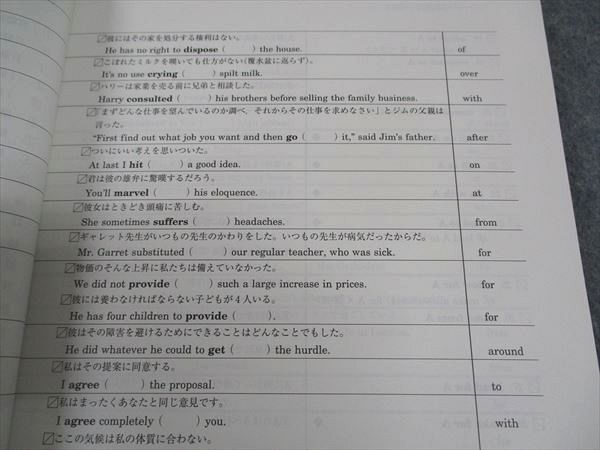 彼にはその家を処分する権利はない。
He has no right to dispose (　　) the house.　of
こぼれたミルクを嘆いても仕方がない(覆水盆に返らず)。
It's no use crying (　　) spilt milk.　over
ハリーは家業を売る前に兄弟と相談した。
Harry consulted (　　) his brothers before selling the family business.　with
「まずどんな仕事を望んでいるのか調べ、それからその仕事を求めなさい」とジムの父親は
言った。
"First find out what job you want and then go (　　) it," said Jim's father.　after
ついにいい考えを思いついた。
At last I hit (　　) a good idea.　on
君は彼の雄弁に驚嘆するだろう。
You'll marvel (　　) his eloquence.　at
彼女はときどき頭痛に苦しむ。
She sometimes suffers (　　) headaches.　from
ギャレット先生がいつもの先生のかわりをした。いつもの先生が病気だったからだ。
Mr. Garret substituted (　　) our regular teacher, who was sick.　for
物価のそんな上昇に私たちは備えていなかった。
We did not provide (　　) such a large increase in prices.　for
彼には養わなければならない子どもが4人いる。
He has four children to provide (　　).　for
彼はその障害を避けるためにできることはどんなことでもした。
He did whatever he could to get (　　) the hurdle.　around
私はその提案に同意する。
I agree (　　) the proposal.　to
私はまったくあなたと同じ意見です。
I agree completely (　　) you.　with
ここの気候は私の体質に合わない。